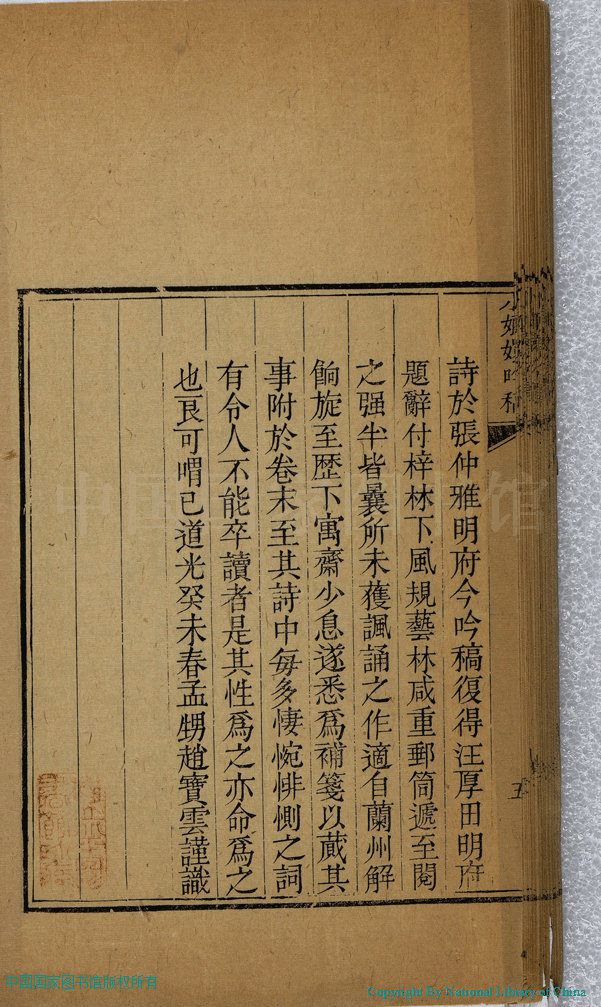 詩於張仲雅明府今吟稿復得汪厚田明府
題辭付梓林下風規藝林咸重郵筒遞至閱
之强半皆曩所未獲諷誦之作適自蘭州解
餉旋至歷下寓齋少息遂悉爲補箋以蕆其
事附於卷末至其詩中每多悽惋悱惻之詞
有令人不能卒讀者是其性爲之亦命爲之
也良可喟已道光癸未春孟甥趙寶雲謹識
五
中国国家图书馆版权所有
Copyright By National Library of China